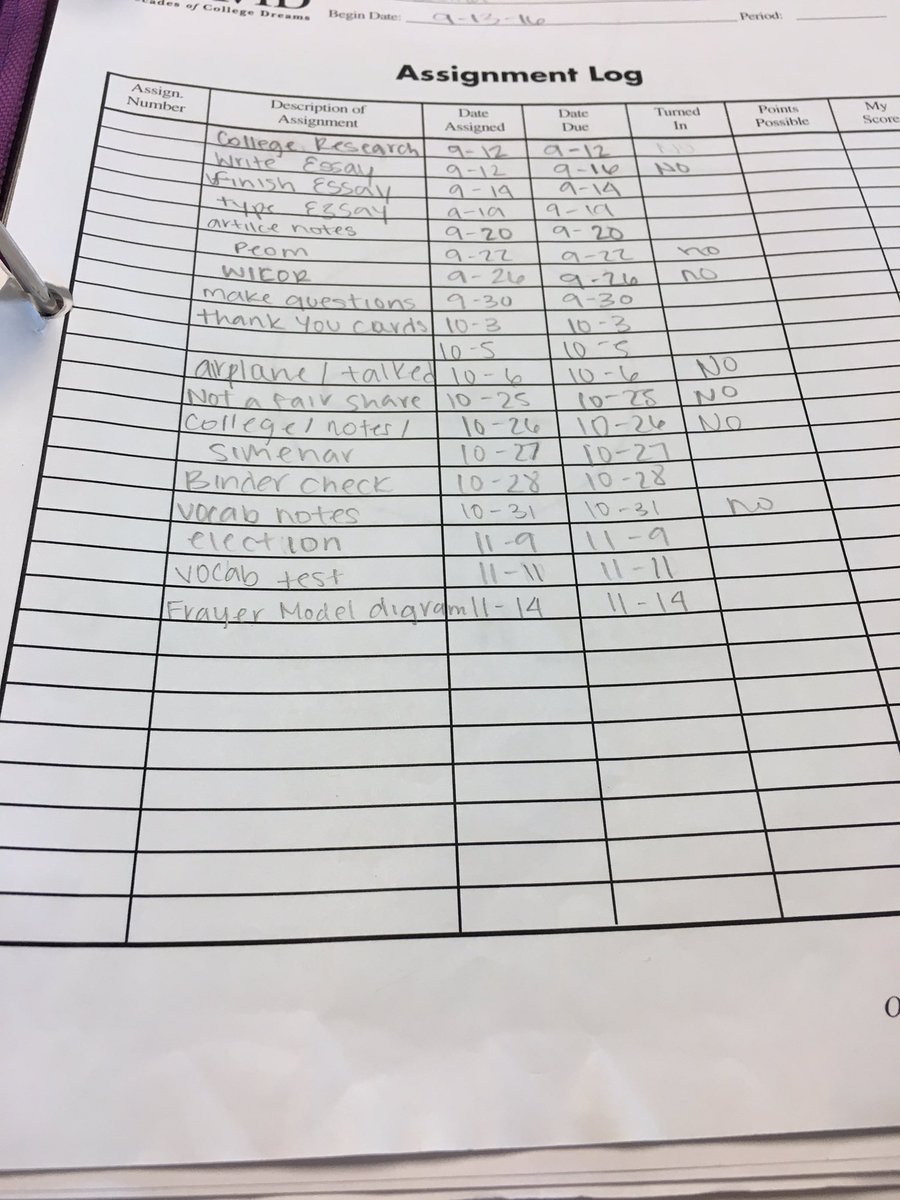 ades of College Dreams Begin Date: 9-13-16 Period:
Assignment Log
Assign. Number Description of Assignment Date Assigned Date Due Turned In Points Possible My Score
College Research 9-12 9-12
Write Essay 9-12 9-16 No
Finish Essay 9-19 9-14
type Essay 9-19 9-19
artilce notes 9-20 9-20
Peom 9-22 9-22 no
WICOR 9-26 9-26 no
make questions 9-30 9-30
thank you cards 10-3 10-3
10-5 10-5
airplane / talked 10-6 10-6 No
Not a fair share 10-25 10-25 No
College / notes / 10-26 10-26 No
Simenar 10-27 10-27
Binder check 10-28 10-28
vocab notes 10-31 10-31 no
election 11-9 11-9
vocab test 11-11 11-11
Frayer Model digram 11-14 11-14